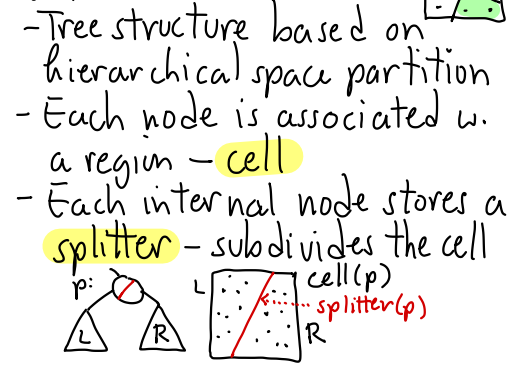 -Tree structure based on
hierarchical space partition
- Each node is associated w.
a region - cell
- Each internal node stores a
splitter - subdivides the cell
p:
L R
L cell(p)
splitter(p)
R